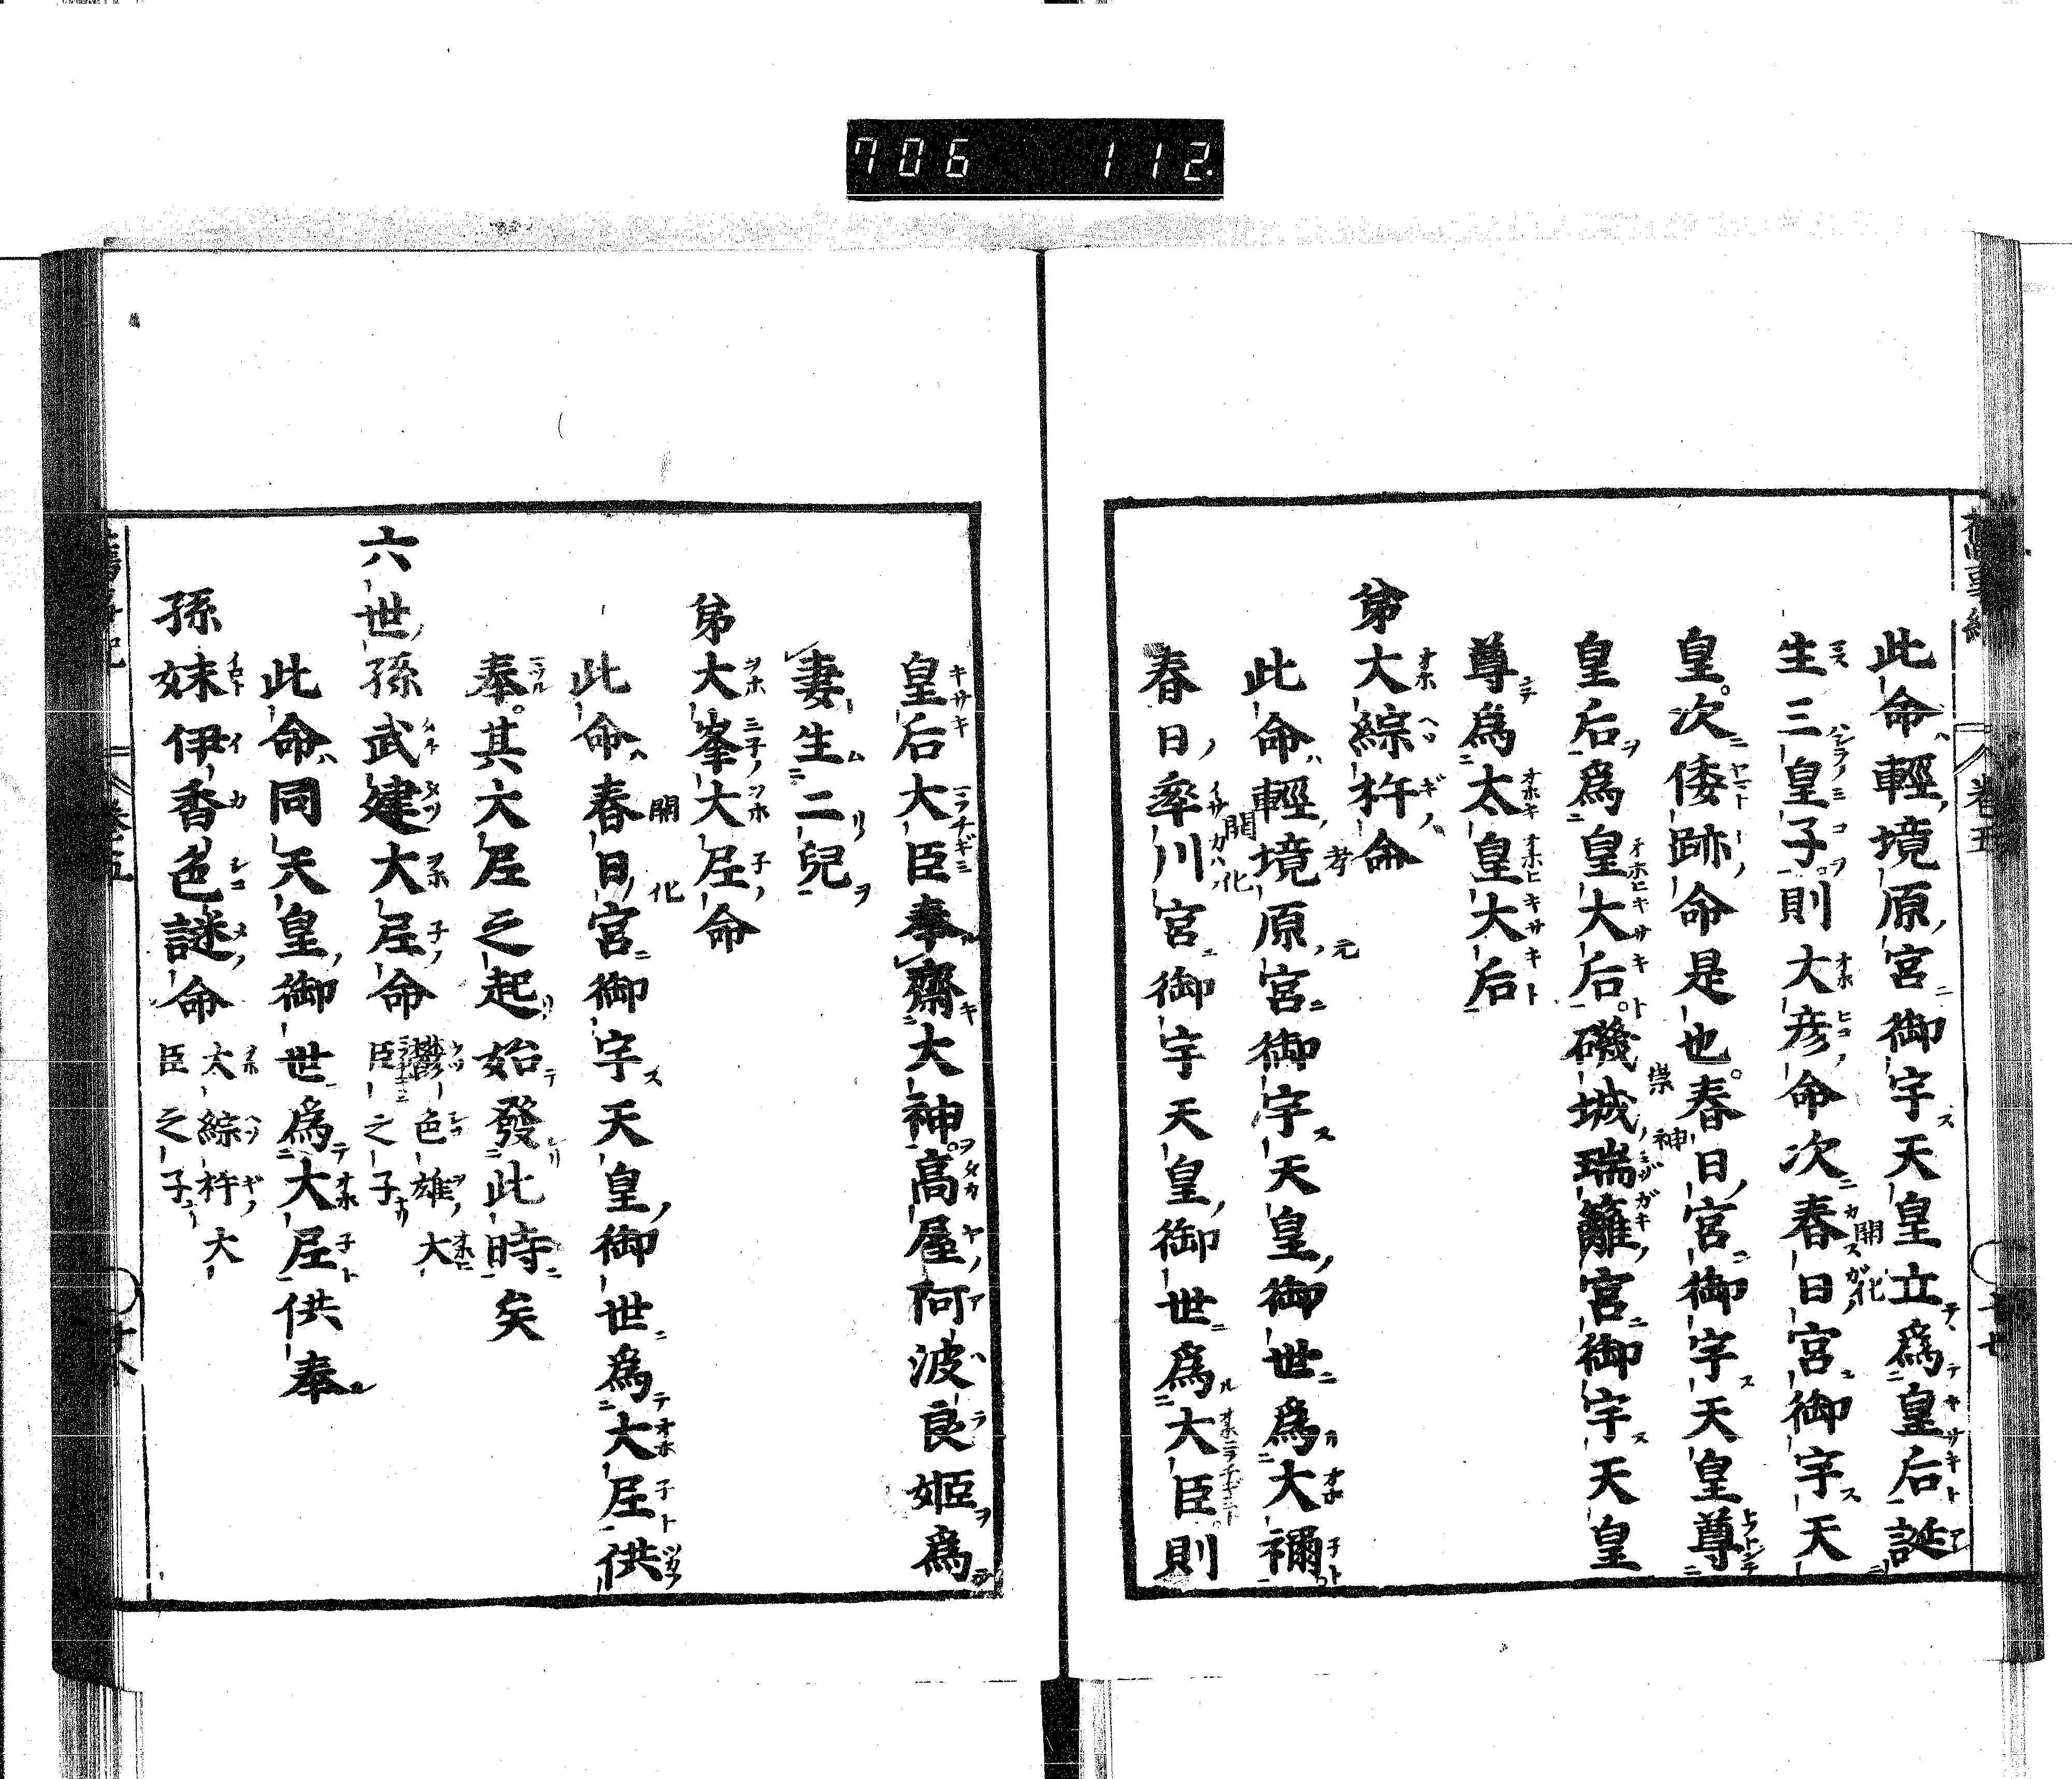 706 112.
卷五
此命輕境原宮御宇天皇立爲皇后誕
生三皇子則大彦命次春日宮御宇天
開化
皇次倭跡命是也春日宮御宇天皇尊
皇后爲皇大后磯城瑞籬宮御宇天皇
崇神
尊爲太皇大后
弟大綜杵命
此命輕境原宮御宇天皇御世爲大禰
考元
春日率川宮御宇天皇御世爲大臣則
開化
皇后大臣奉齋大神高屋阿波良姫爲
妻生二兒
弟大峯大尼命
此命春日宮御宇天皇御世爲大尼供
開化
奉其大尼之起始發此時矣
六世孫武建大尼命 鬱色雄大臣之子
此命同天皇御世爲大尼供奉
孫妹伊香色謎命 太綜杵大臣之子
卷五